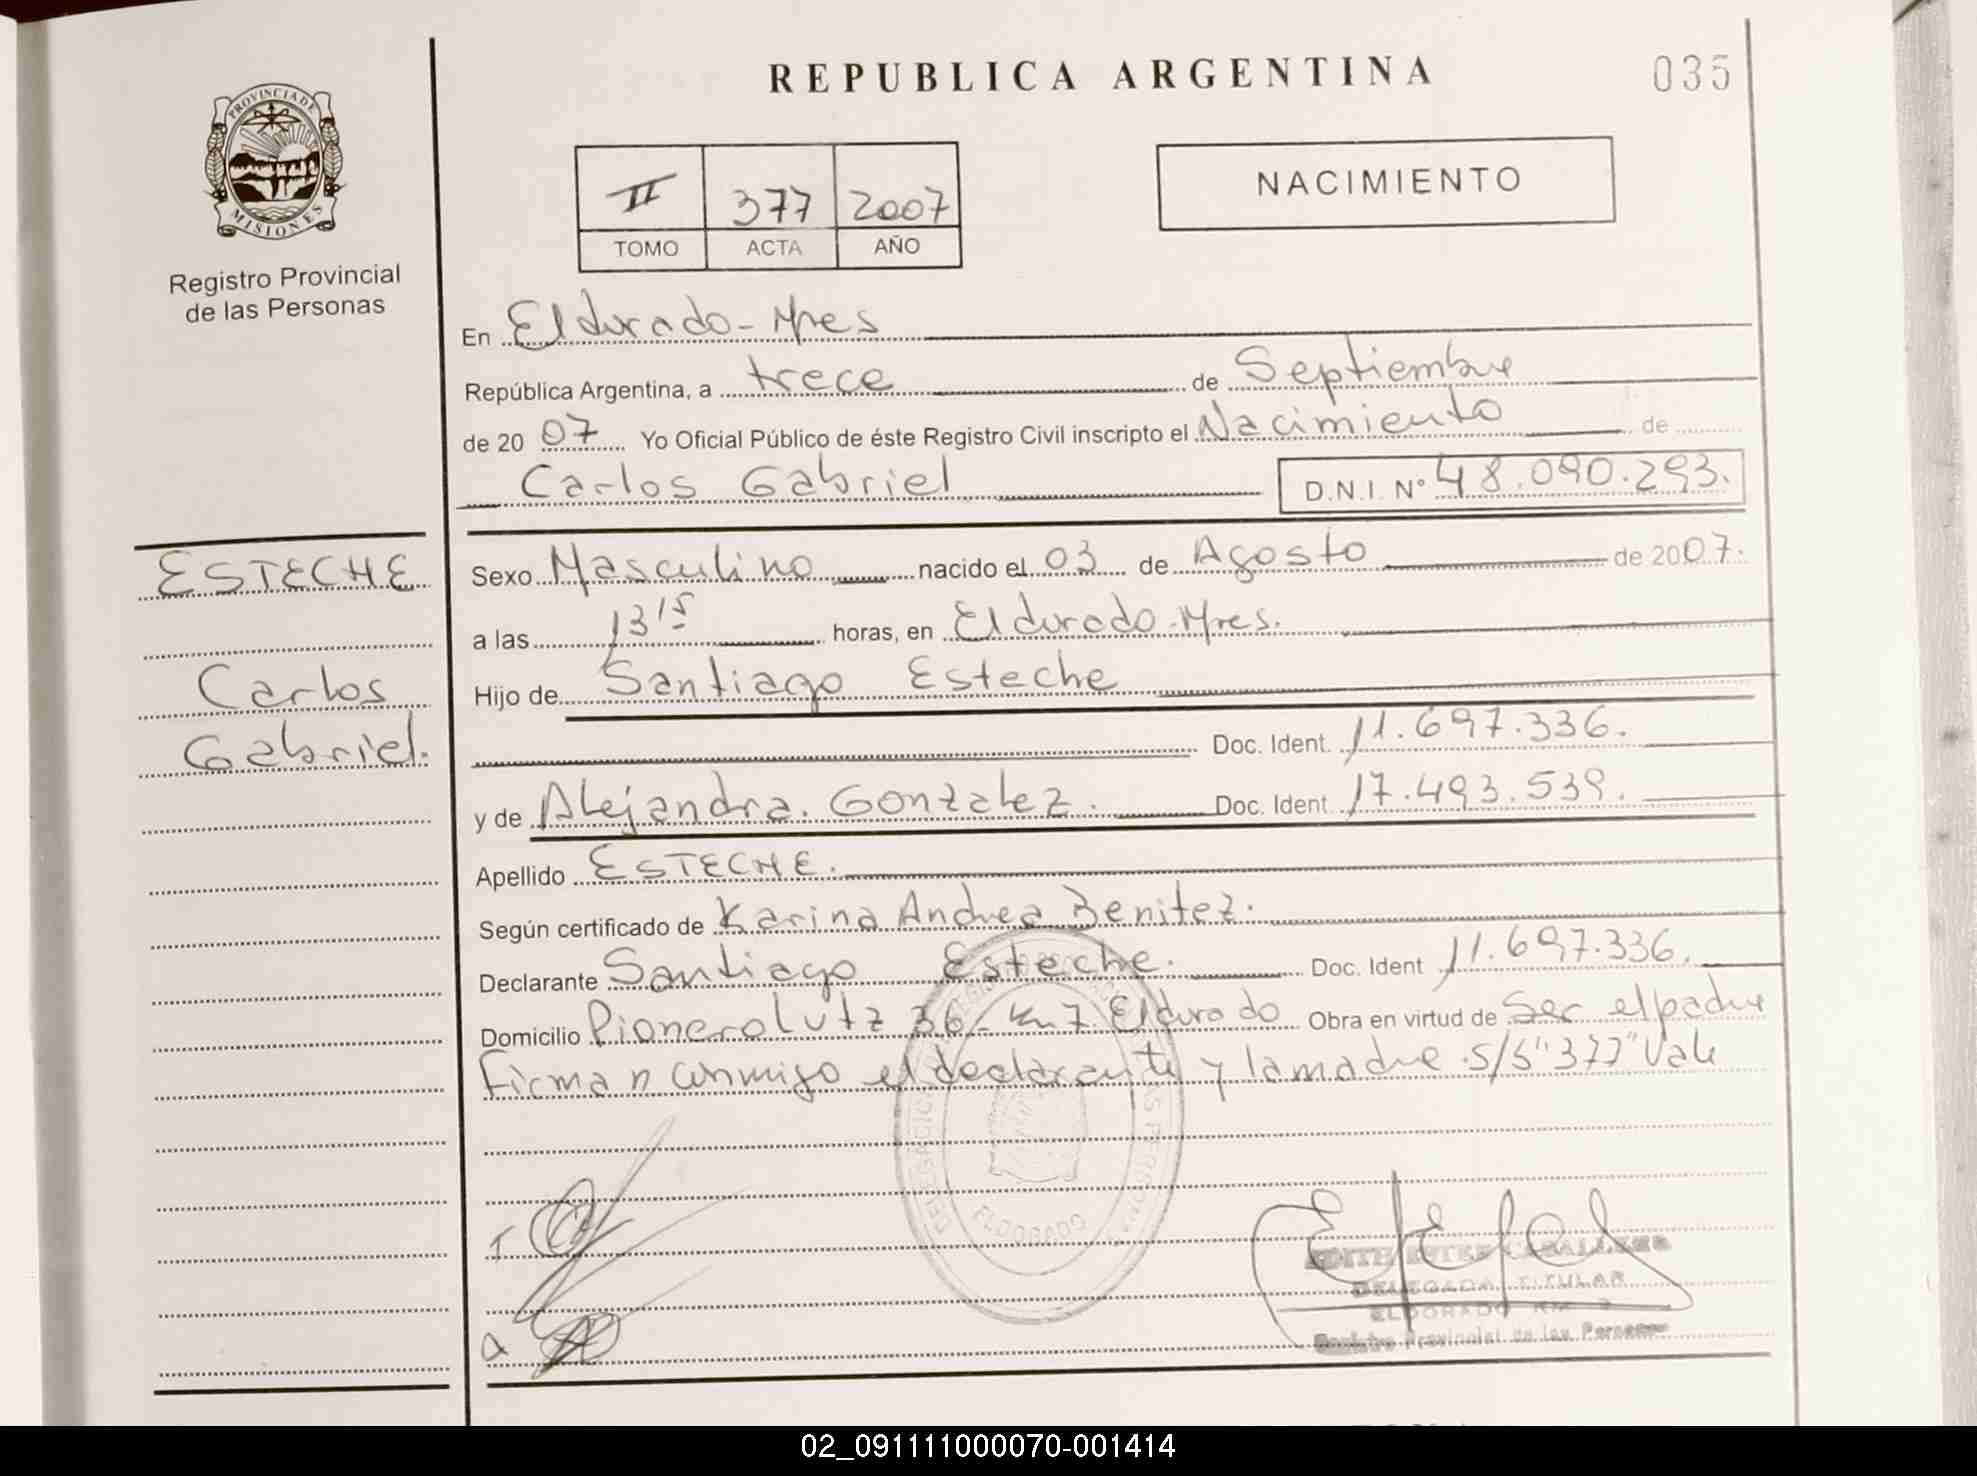 REPUBLICA ARGENTINA
035
PROVINCIA DE
MISIONES
Registro Provincial
de las Personas
II 377 2007
TOMO ACTA AÑO
NACIMIENTO
En Eldorado - Mnes
República Argentina, a trece de Septiembre
de 2007 Yo Oficial Público de éste Registro Civil inscripto el Nacimiento de
Carlos Gabriel D.N.I. Nº 48.090.293.
ESTECHE
Carlos
Gabriel.
Sexo Masculino nacido el 03 de Agosto de 2007.
a las 13 15 horas, en Eldorado - Mnes.
Hijo de Santiago Esteche
Doc. Ident. 11.697.336.
y de Alejandra. Gonzalez. Doc. Ident. 17.493.539.
Apellido ESTECHE.
Según certificado de Karina Andrea Benitez.
Declarante Santiago Esteche. Doc. Ident 11.697.336.
Domicilio Pionero Lutz 36 - km 7. Eldorado Obra en virtud de Ser el padre
Firman conmigo el declarante y la madre. S/S "377" Vale
ELDORADO
EDITH CABALLERO
DELEGADA TITULAR
ELDORADO KM 7
Registro Provincial de las Personas
02_091111000070-001414